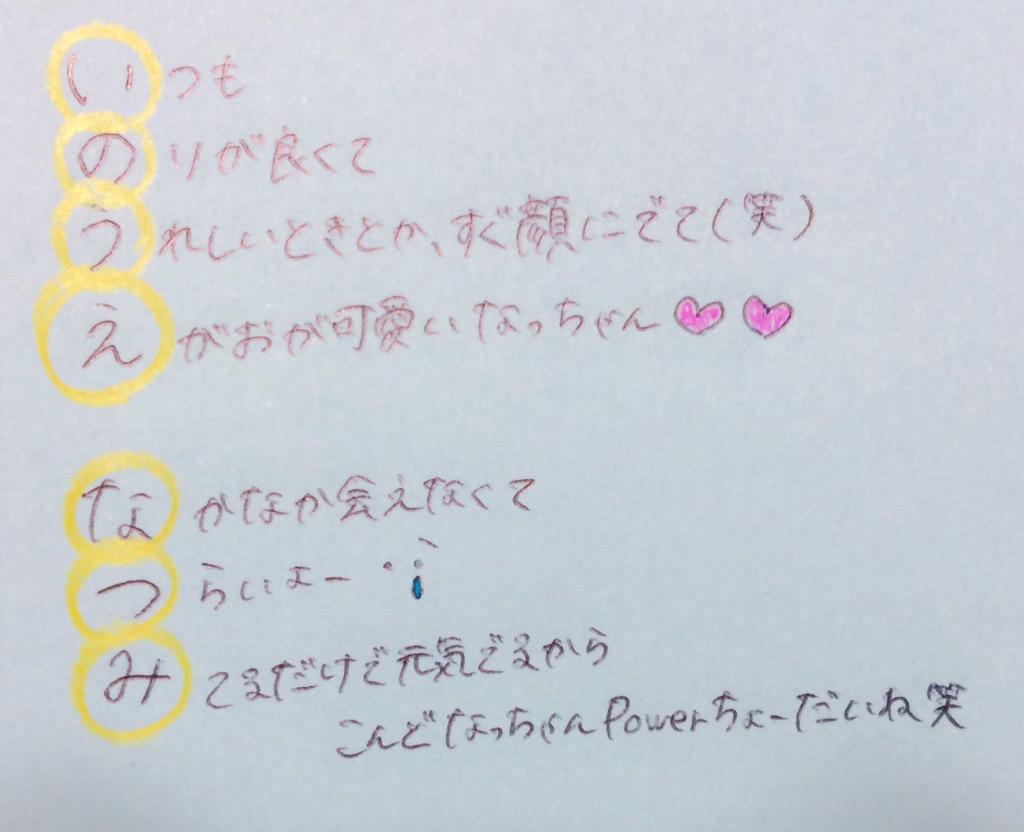 いつも
のりが良くて
うれしいときとか、すぐ顔にでて(笑)
えがおが可愛いなっちゃん
なかなか会えなくて
つらいよー
みてるだけで元気でるから
こんどなっちゃんPowerちょーだいね笑